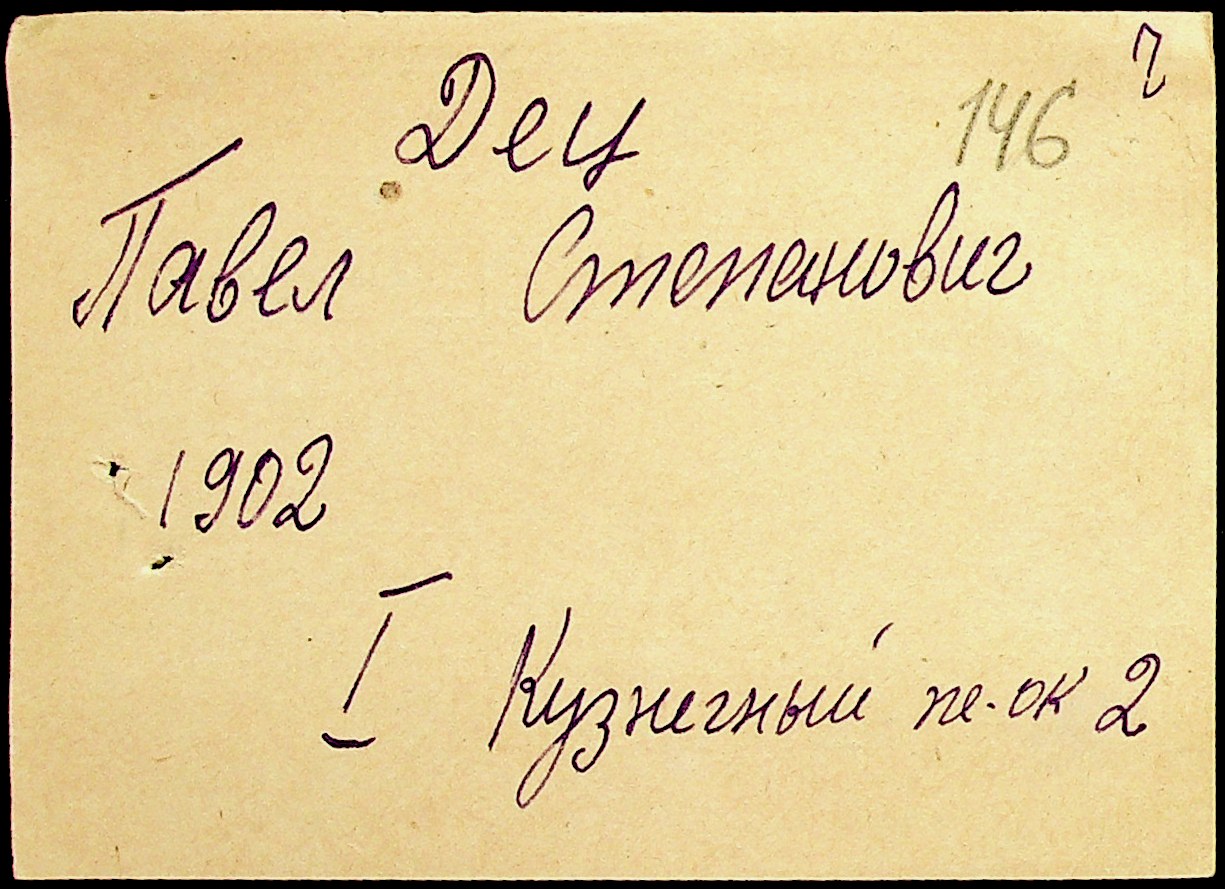 Дец 146 ч
Павел Степанович
1902
I Кузнечный пе-ок 2